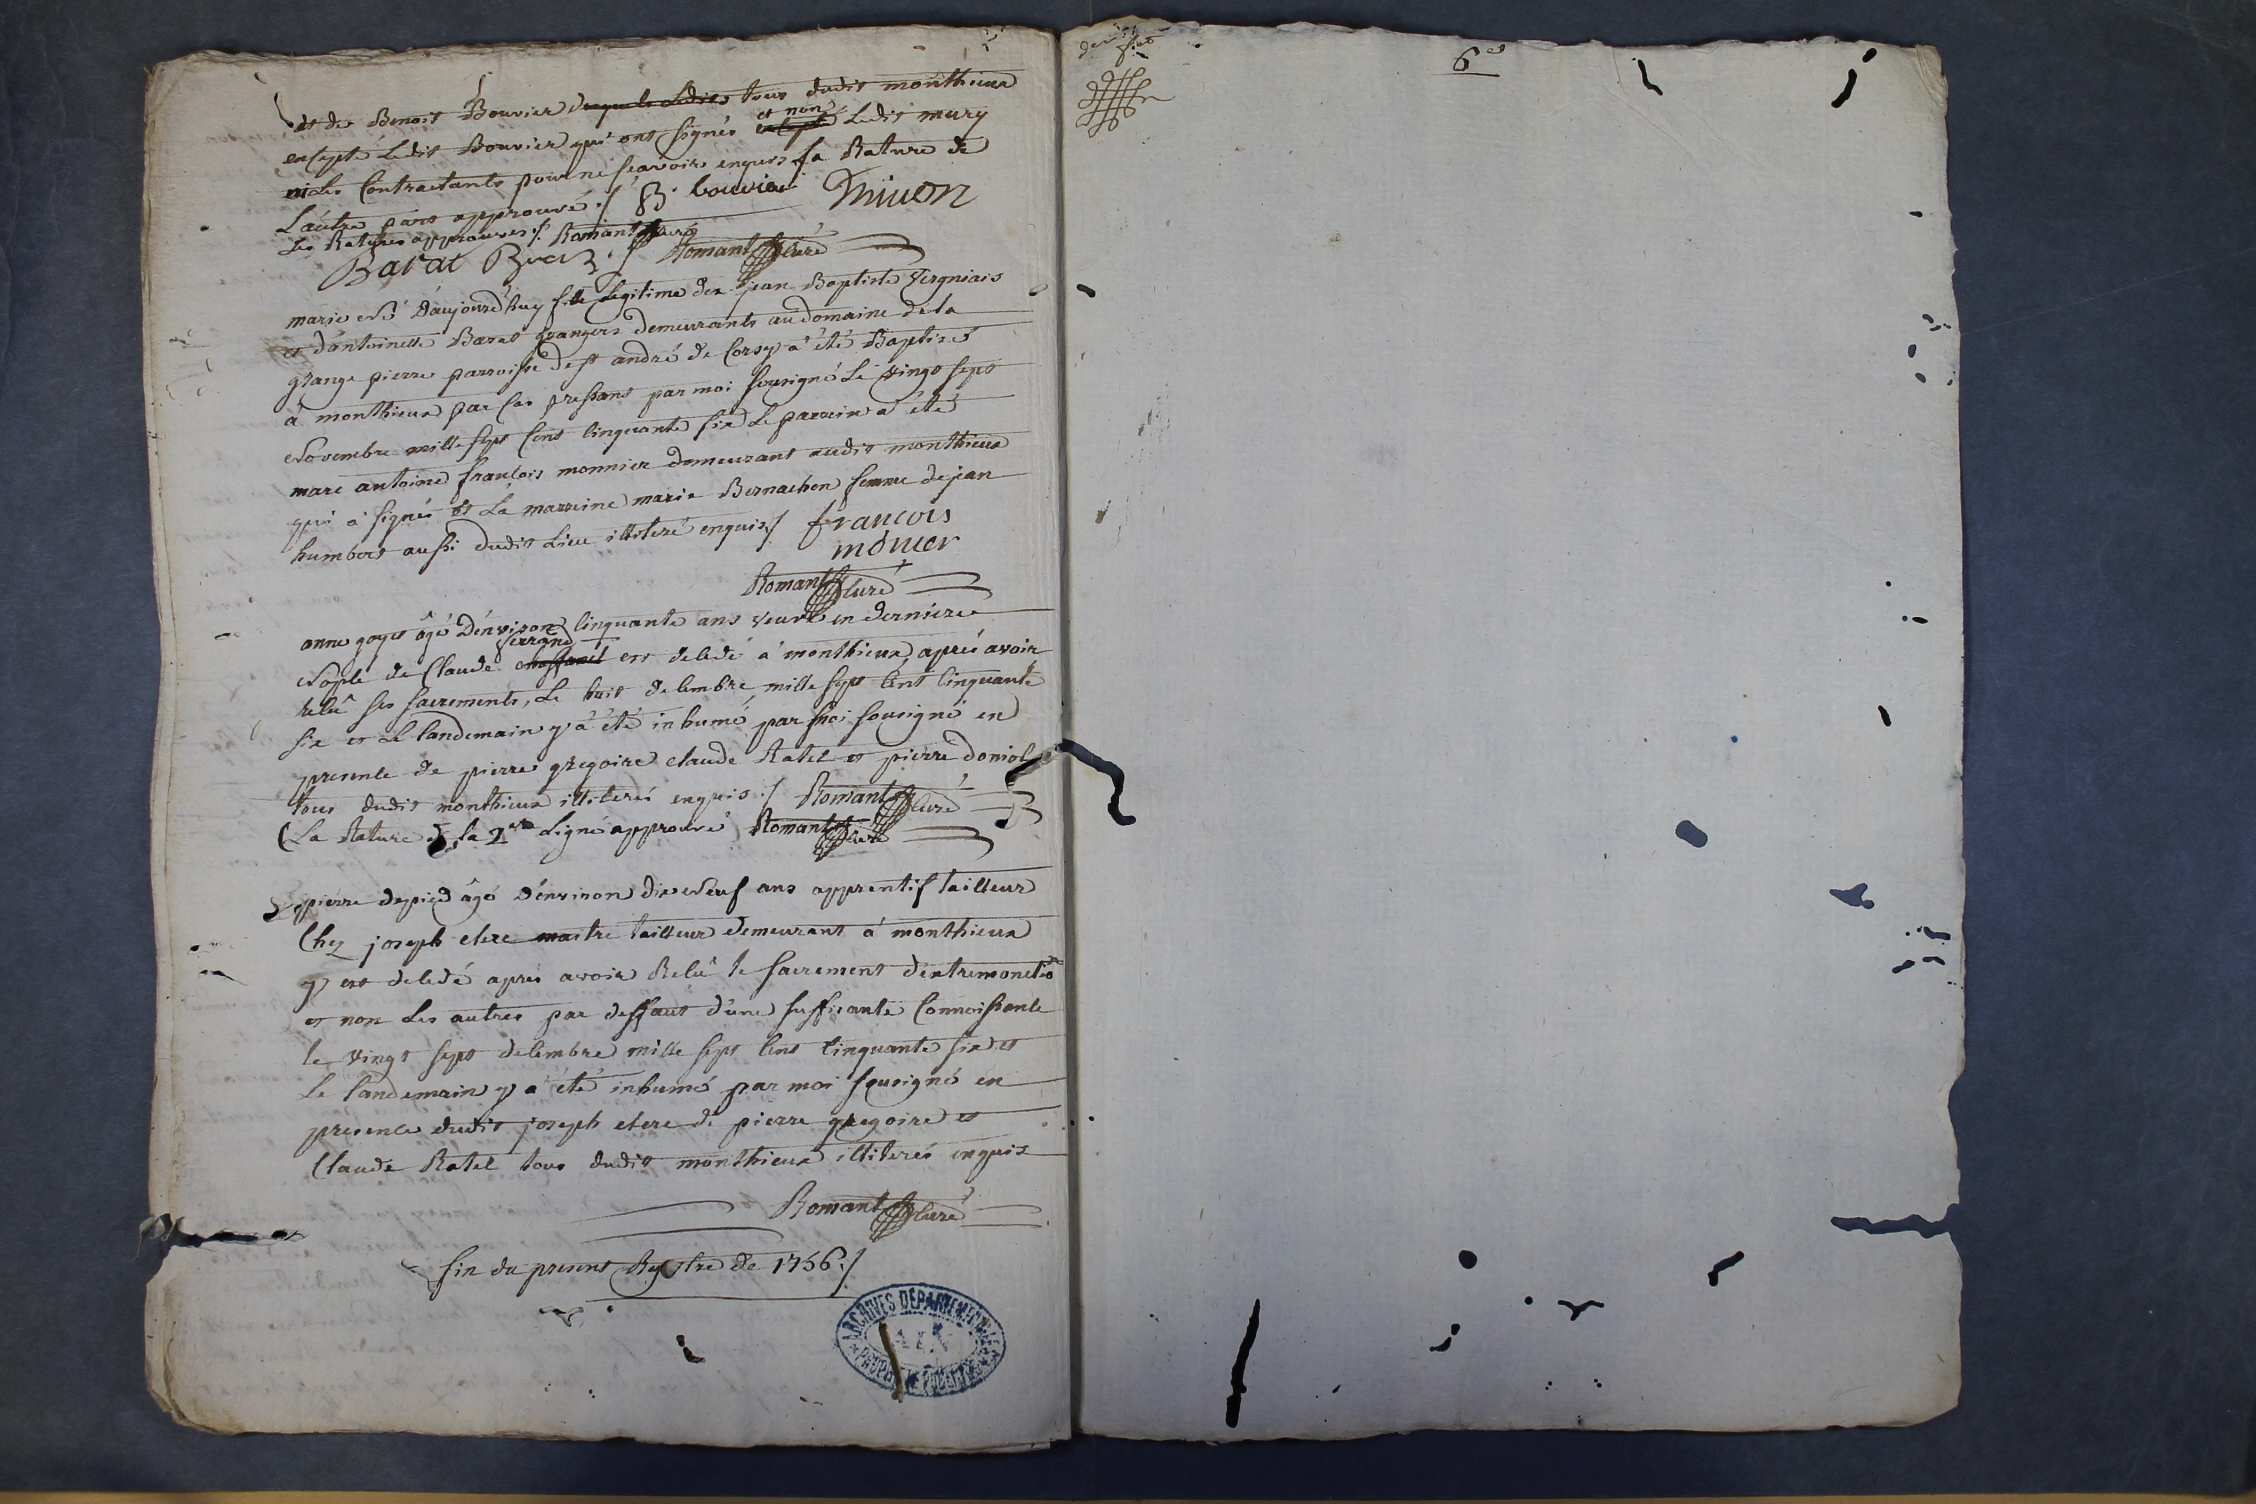 et de Benoit Bouvier tous dudit monthieux
excepté Ledit Bouvier qui ont signés et non Ledit mury
ni les Contractants pour ne sçavoir enquis la Rature de
L'autre part approuvé ·/ B. bouvier Thivon
Les Ratures approuvés ·/. Romant Curé
Barat ·/ Romant Curé
marie Né d'aujourd'huy fille Legitime de jean Baptiste Vergniais
et d'antoinette Barat grangers demeurants au domaine de la
grange pierre parroisse de st andré de Corsy a été Baptisé
à monthieux par Cas pressant par moi sousigné Le vingt sept
Novembre mille sept cent cinquante six Le parrain a été
marc antoine françois monnier demeurant audit monthieux
qui a signés et La marraine marie Bernachon femme de jean
humbert aussi dudit Lieu illiteré enquis ·/ francois
monier
Romant Curé
anne goyet âgé D'environ cinquante ans veuve en derniere
Nople de Claude est decedé à monthieux, après avoir
recû ses sacrements, Le huit decembre mille sept cent cinquante
six et Le landemain y a été inhumé par moi sousigné en
presence de pierre gregoire claude Ratel et pierre doniol
tous dudit monthieux illiterés enquis ·/ Romant Curé
(La Rature de la 2 Ligne approuvé Romant Curé
pierre depied âgé D'environ dix Neuf ans apprentif tailleur
Chez joseph clere maitre tailleur demeurant à monthieux
y est decedé apres avoir Recû le sacrement d'extremonctiõ
et non Les autres par deffaut d'une suffisante Connoissance
le vingt sept decembre mille sept cent cinquante six et
Le landemain y a été inhumé par moi sousigné en
presence dudit joseph clere de pierre gregoire et
Claude Ratel tous dudit monthieux illiterés enquis
Romant Curé
fin du present Registre de 1756 ·/
ARCHIVES DÉPARTEMENTALES
AIN
PROPRIÉTÉ PUBLIQUE
6